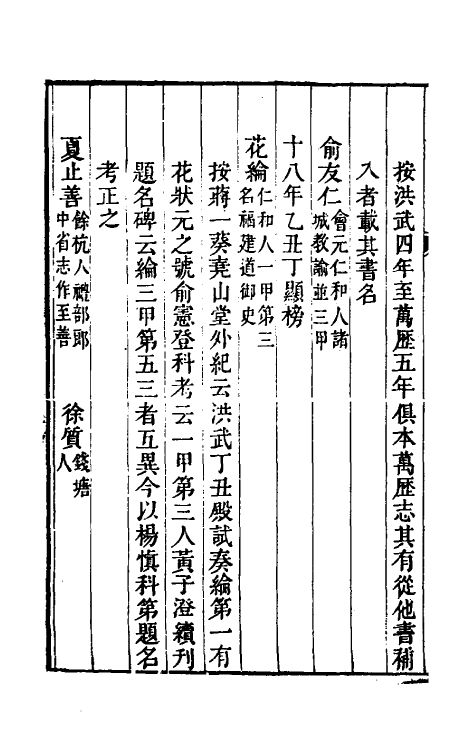 按洪武四年至萬歷五年俱本萬歷志其有從他書補
入者載其書名
俞友仁會元仁和人諸
城教諭並三甲
十八年乙丑丁顯榜
花綸仁和人一甲第三
名福建道御史
按蔣一葵堯山堂外紀云洪武丁丑殿試奏綸第一有
花狀元之號俞憲登科考云一甲第三人黃子澄續刊
題名碑云綸三甲第五三者互異今以楊慎科第題名
考正之
夏止善餘杭人禮部郎
中省志作至善
徐質錢塘
人